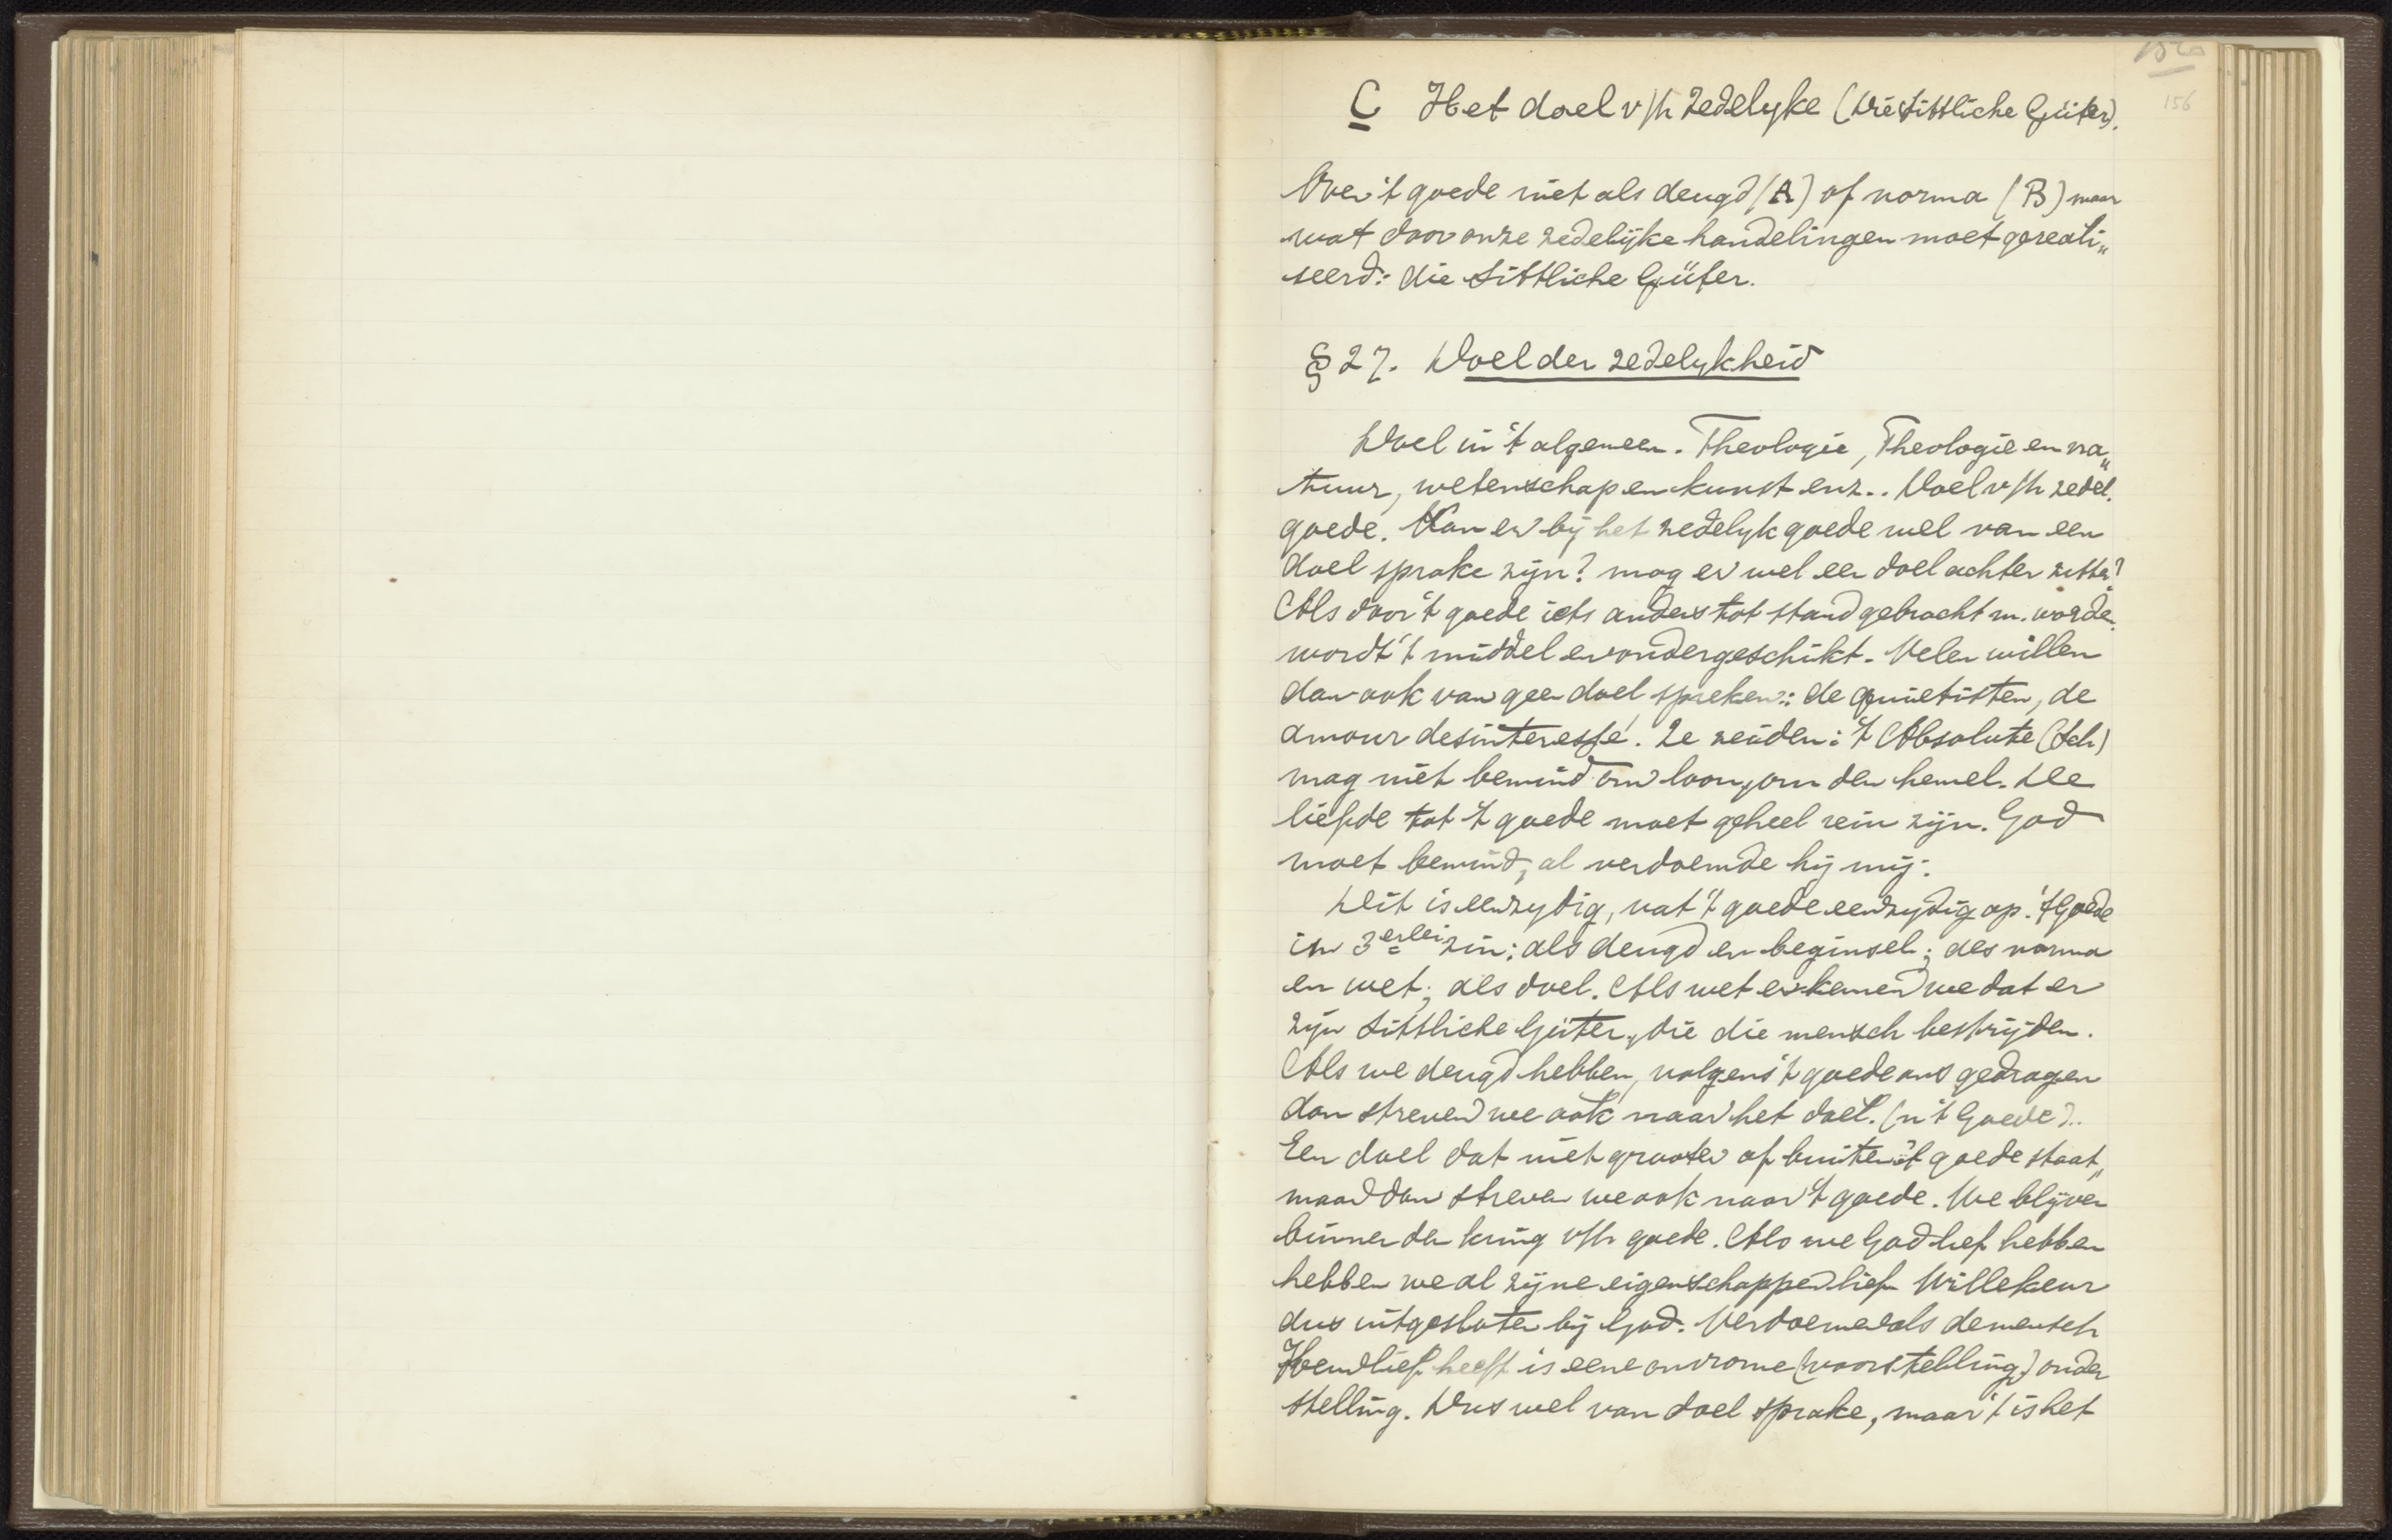 156
C Het doel v/h zedelyke (die sittliche Güter).
Over 't goede niet als deugd (A) of norma (B) maar
wat door onze zedelijke handelingen moet gereali„
seerd: die sittliche Güter.
§ 27. Doel der zedelykheid
Doel in 't algemeen. Theologie, Theologie en na„
tuur, wetenschap en kunst enz.. Doel v/h zedel.
goede. Kan er bij het zedelyk goede wel van een
doel sprake zijn? mag er wel een doel achter zitten?
Als door 't goede iets anders tot stand gebracht m. worden
wordt 't middel en ondergeschikt. Velen willen
dan ook van geen doel spreken: de quietisten, de
amour desinteressé. Ze zeiden: 't Absolute (Sch)
mag niet bemind om loon, om den hemel. De
liefde tot 't goede moet geheel rein zijn. God
moet bemind, al verdoemde hij mij.
Dit is eenzydig, vat 't goede eenzydig op. 't Goede
in 3erlei zin: als deugd en beginsel; als norma
en wet; als doel. Als wet erkennen we dat er
zijn sittliche Güter, die die mensch bestrijden.
Als we deugd hebben, volgens 't goede ons gedragen
dan streven we ook naar het doel. (n 't Goede)..
Een doel dat niet grooter of buiten 't goede staat„
maar dan streven we ook naar 't goede. We blijven
binnen den kring v/h goede. Als we God lief hebben
hebben we al zijne eigenschappen lief. Willekeur
dus uitgesloten bij God. Verdoemen als de mensch
Hem lief heeft is eene onvrome (voorstelling) onder
stelling. Dus wel van doel sprake, maar 't is het